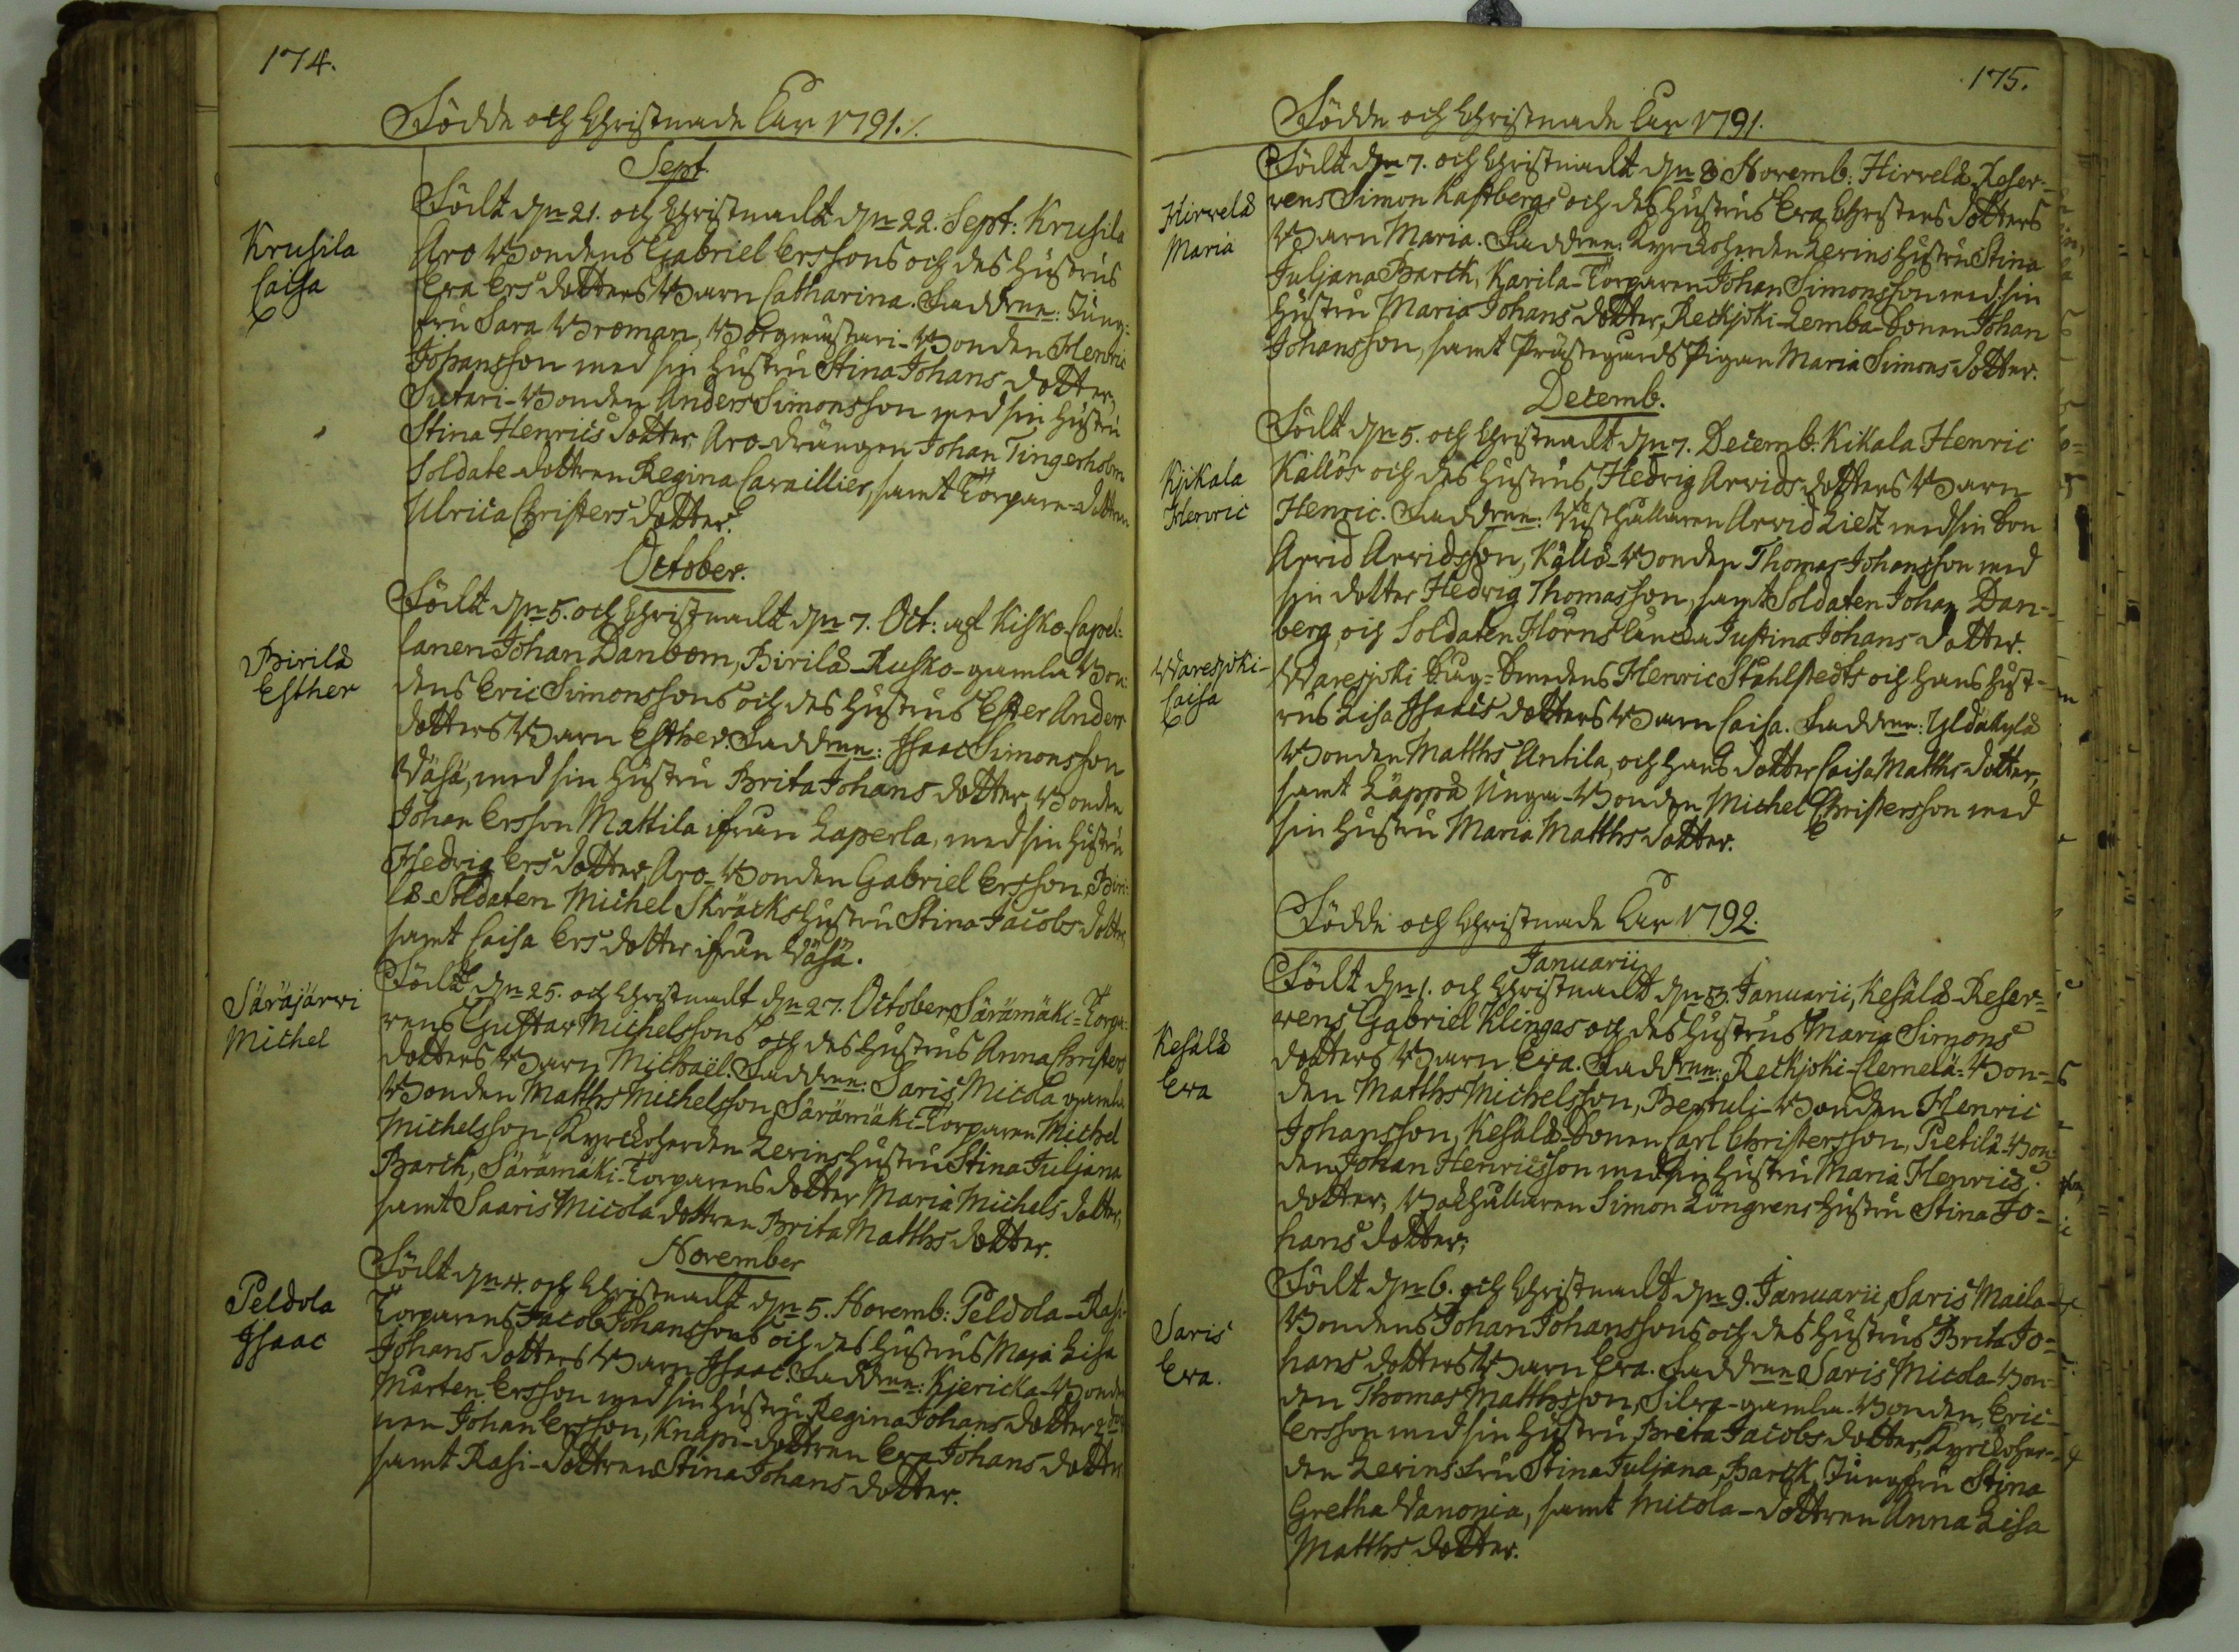 174.
Födde och Christnade Åhr 1791./.
Sept.
Krusila
Caisa
Födt d̄n 21. och Christnadt d̄n 22. Sept: Krusila
Aro Bondens Gabriel Ersson̄s och des Hustrus
Eva Ers dotters Barn Catharina. Faddrar: Jung-
fru Sara Broman, Bocgmästari-Bonden Henric
Johansson med sin Hustru Stina Johans dotter,
Sutari-Bonden Anders Simonsson med sin Hustru
Stina Henrics dotter, Aro-drängen Johan Tingerholm
Soldate-dottren Regina Cavaillier, samt Torpare-dottren
Ulrica Christers dotter.
October.
Birilä
Esther
Födt d̄n 5. och Christnadt d̄n 7. Oct: af Kisko-Capel-
lanen Johan Danbom, Birilä-Rusko-gamla Bon-
dens Eric Simonssons och des Hustrus Ester Anders
dotters Barn Esther. Faddrar: Isaac Simonsson
Wäsä, med sin Hustru Brita Johans dotter, Bonden
Johan Ersson Mattila ifrån Laperla, med sin Hustru
Hedvig Ers dotter, Aro-Bonden Gabriel Ersson, Biri-
lä-Soldaten Michel Skräcks Hustru Stina Jacobs dotter,
samt Caisa Ers dotter ifrån Wäsä.
Säräjärvi
Michel
Födt d̄n 25. och Christnadt d̄n 27. October, Särämäki-Torpa-
rens Gustav Michelssons och des Hustrus Anna Christers
dotters Barn Michaël. Faddrar: Saris Micola gamla
Bonden Matths Michelsson, Särämäki-Torparen Michel
Michelsson, Kyrckoherden Levins Hustru Stina Juljana
Barck, Särämäki-Torparens dotter Maria Michels dotter,
samt Saaris Micola dottren Brita Matths dotter.
November
Peldola
Isaac
Födt d̄n 4. och Christnadt d̄n 5. Novemb: Peldola-Rasi-
Torparens Jacob Johanssons och des Hustrus Maja Lisa
Johans dotters Barn Isaac. Faddrar: Kjericka-Bonden
Mårten Ersson med sin Hustru Regina Johans dotter
nen Johan Ersson, Knapi-dottren Eva Johans dotter
samt Rasi-dottren Stina Johans dotter.
175.
Födde och Christnade Åhr 1791.
Hirvelä
Maria
Födt d̄n 7. och Christnadt d̄n 8 Novemb: Hirvelä-Reser-
vens Simon Kastbergs och des Hustrus Eva Christers dotters
Barn Maria. Faddrar: Kyrckoherden Levins Hustru Stina
Juljana Barck, Karila-Torparen Johan Simonsson med sin
Hustru Maria Johans dotter, Reckjoki-Lemba-Sonen Johan
Johansson, samt Prästegårds Pigan Maria Simons dotter.
Decemb.
Kjikala
Henric
Födt d̄n 5. och Christnadt d̄n 7. Decemb: Kikala Henric
Källös och des Hustrus, Hedvig Arvids dotters Barn
Henric. Faddrar: Wusthållaren Arvid Lietz med sin Son
Arvid Arvidsson, Källö-Bonden Thomas Johansson med
sin dotter Hedvig Thomasson, samt Soldaten Johan Dan-
berg, och Soldaten Hörns läncka Justina Johans dotter.
Waresjoki-
Caisa
Waresjoki Såg-Smedens Henric Stahlstedts och hans Hust-
rus Lisa Isaacs dotters Barn Caisa. Faddrar: Yldäkylä
Bonden Matths Antila, och hans dotter Caisa Matths dotter,
samt Läppä Unga-Bonden Michel Christersson med
sin Hustru Maria Matths dotter.
Födde och Christnade Åhr 1792.
Januarii
Kesälä
Eva
Födt d̄n 1. och Christnadt d̄n 3. Januarii, Kesälä-Reser-
vens Gabriel Klingas och des Hustrus Maria Simons
dotters Barn Eva. Faddrar: Reckjoki-Clemelä-Bon-
den Matths Michelsson, Bertuli-Bonden Henric
Johansson, Kesälä-Sonen Carl Christersson, Pietilä-Bon-
den Johan Henricsson med sin Hustru Maria Henrics
dotter, Båthållaren Simon Löngrens Hustru Stina Jo-
hans dotter.
Saris
Eva.
Födt d̄n 6. och Christnadt d̄n 9. Januarii, Saris Maila-
Bondens Johan Johanssons och des Hustrus Brita Jo-
hans dotters Barn Eva. Faddrar Saris Micola-Bon-
den Thomas Matthsson, Silva-gamla-Bonden, Eric-
Ersson med sin Hustru Brita Jacobs dotter, Kyrckoher-
den Levins Fru Stina Juljana Barck, Jungfru Stina
Gretha Wanonia, samt Micola-dottren Anna Lisa
Matths dotter.